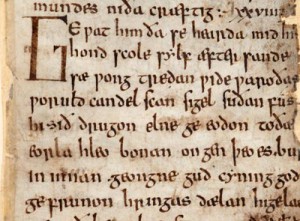 mundes niða cræftig :·
GEǷat him ða se hearda mid hi
hond scole sylf æfter sande
sæ ƿong tredan ƿide ƿaroðas
ƿoruld candel scan sigel suðan fus
hi sið drugon elne ge eodon to ðæ
eorla hleo bonan on gen þeo es bu
in innan geongne guð cyning god
ge frunon hringas dælan higela